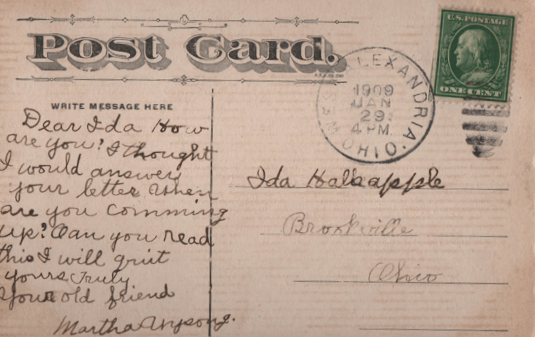 Post Card.
U.S. POSTAGE
ONE CENT
WEST ALEXANDRIA. OHIO
1909
JAN
29
4 PM
WRITE MESSAGE HERE
Dear Ida How
are you? I thought
I would answer
your letter when
are you comming
up? Can you read
this I will quit
yours Truly
Your old friend
Martha Wysong.
Ida
Ohio